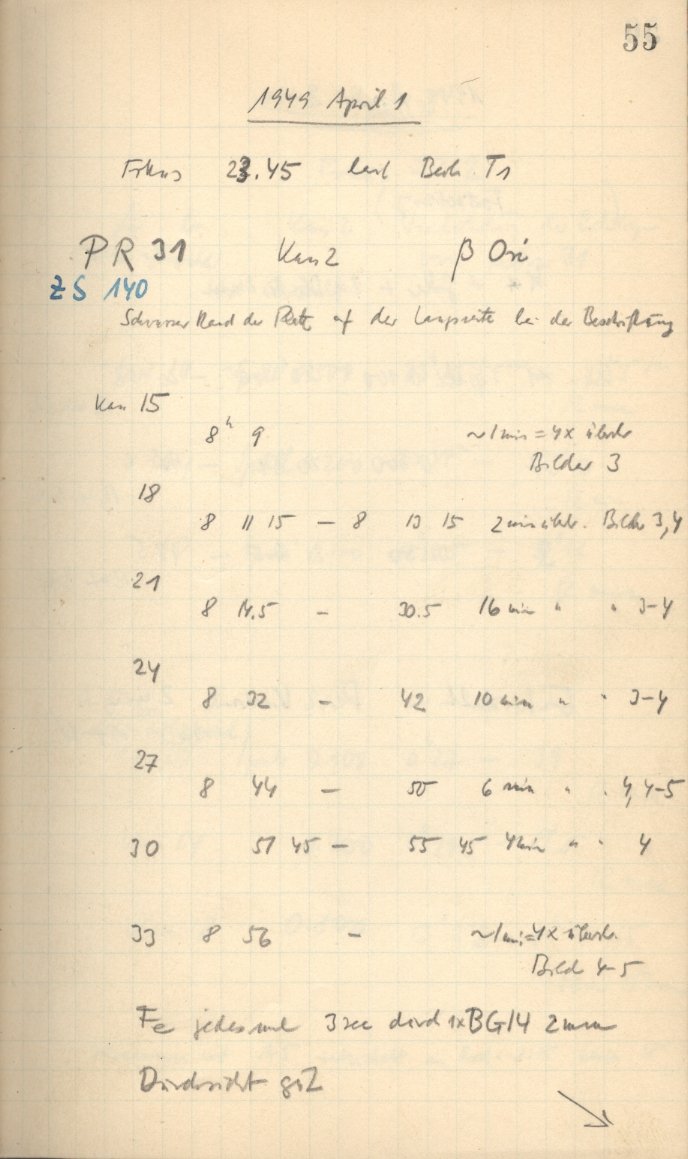 55
1949 April 1
Fokus 23.45 laut Beob. T1
PR 31 Kam 2 β Ori
ZS 140
Schwarzer Rand der Platte auf der Langseite bei der Beschriftung
Kam 15
8h 9 ~1 min = 4x überbr
Bilder 3
18
8 11 15 – 8 13 15 2 min überbr. Bilder 3,4
21
8 14.5 – 30.5 16 min " " 3-4
24
8 32 – 42 10 min " " 3-4
27
8 44 – 50 6 min " " 4, 4-5
30 51 45 – 55 45 4 min " " 4
33 8 56 – ~1 min = 4x überbr.
Bild 4-5
Fe jedesmal 3 sec durch 1x BG14 2 mm
Durchsicht gut